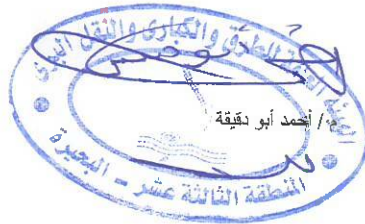 الهيئة العامة للطرق والكبارى والنقل البرى
م/ أحمد أبو دقيقة
المنطقة الثالثة عشر - البحيرة